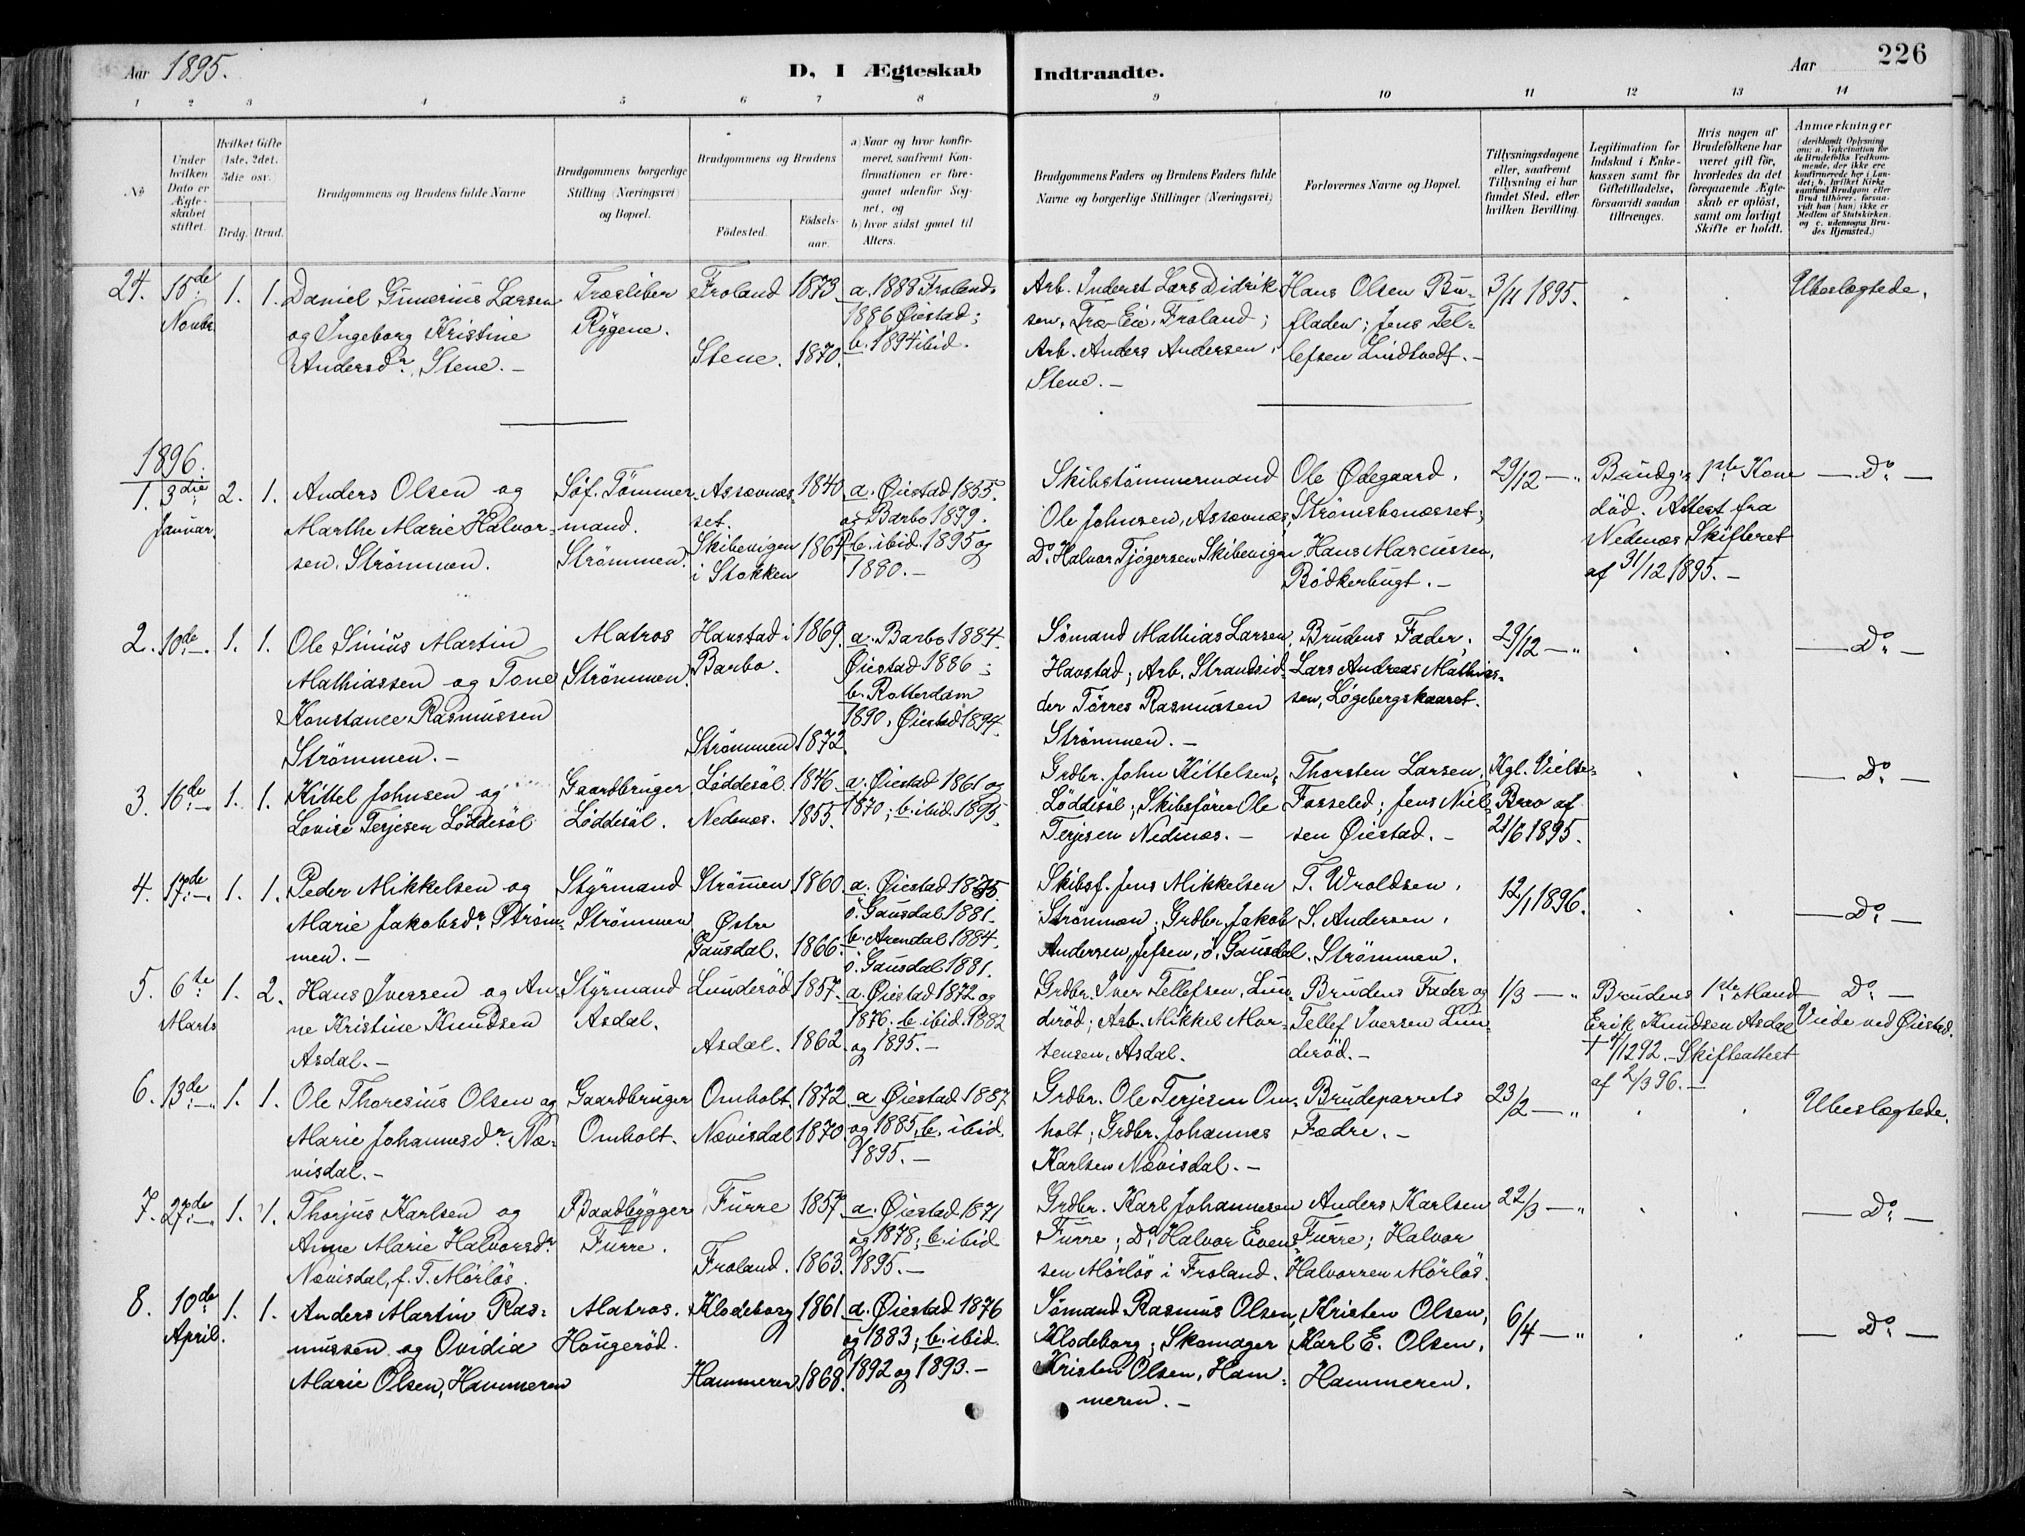 Aar 1895.
D, I Ægteskab
Indtraadte.
Aar
226
1 2 3 4 5 6 7 8 9 10 11 12 13 14
No
Under hvilken Dato er Ægteskabet stiftet.
Hvilket Gifte (1ste, 2det, 3die osv.)
Brdg. Brud.
Brudgommens og Brudens fulde Navne
Brudgommens borgerlige Stilling (Næringsvei) og Bopæl.
Brudgommens og Brudens
Fødested.
Fødselsaar.
a) Naar og hvor konfirmeret, saafremt Konfirmationen er foregaaet udenfor Sognet, og
b) hvor sidst gaaet til Alters.
Brudgommens Faders og Brudens Faders fulde Navne og borgerlige Stillinger (Næringsvei)
Forlovernes Navne og Bopæl.
Tillysningsdagene eller, saafremt Tillysning ei har fundet Sted, efter hvilken Bevilling.
Legitimation for Indskud i Enkekassen samt for Giftetilladelse, forsaavidt saadan tiltrænges.
Hvis nogen af Brudefolkene har været gift før, hvorledes da det foregaaende Ægteskab er opløst, samt om lovligt Skifte er holdt.
Anmærkninger
24. 15de Novbr. 1. 1.
Daniel Gunerius Larsen
og Ingeborg Kristine
Andersdr. Stene. –
Træsliber
Rygene.
Froland 1873
Stene. 1870.
a. 1888 Froland
1886 Øiestad;
b. 1894 ibid.
Arb. Inderst Lars Didrik
sen, Træ-Eie, Froland;
Arb. Anders Andersen,
Stene. –
Hans Olsen Bu-
fladen; Jens Tel-
lefsen Lindtvedt. –
3/11 1895.
Ubeslægtede.
1896.
1. 3die Januar. 2. 1.
Anders Olsen og
Marthe Marie Halvor-
sen. Strømmen.
Søf. Tømmer-
mand.
Strømmen.
Assævnæs- 1840.
set.
Skibevigen 1867
i Stokken
a. Øiestad 1855.
og Barbo 1879.
b. ibid. 1895 og
1880. –
Skibstømmermand
Ole Johnsen, Assævnæs,
Do. Halvor Tjøgersen Skibevigen
Ole Ødegaard.
Strømsbonæsset;
Hans Marcussen,
Bødkerbugt. –
29/12 – "
Brudg's 1ste Kone
død. Attest fra
Nedenæs Skifteret
af 31/12 1895. –
– Do. –
2. 10de –. 1. 1.
Ole Sinius Martin
Mathiassen og Tone
Konstance Rasmussen
Strømmen. –
Matros
Strømmen.
Havstad i 1869.
Barbo.
Strømmen 1872.
a. Barbo 1884.
Øiestad 1886;
b. Rotterdam
1890, Øiestad 1894.
Sømand Mathias Larsen,
Havstad; Arb. Strandsid-
der Tørres Rasmussen
Strømmen. –
Brudens Fader.
Lars Andreas Mathias-
sen, Løgebergskaaret.
29/12 – "
– Do. –
3. 16de –. 1. 1.
Kittel Johnsen og
Lovise Terjesen Løddesøl
Gaardbruger
Løddesøl.
Løddesøl. 1846
Nedenæs. 1855.
a. Øiestad 1861 og
1870; b. ibid. 1895.
Grdbr. John Kittelsen,
Løddesøl; Skibsfører Ole
Terjesen Nedenæs. –
Thorsten Larsen,
Fosseled; Jens Niel-
sen Øiestad. –
Kgl. Vielse-
Brev af
21/6 1895.
– Do. –
4. 17de –. 1. 1.
Peder Mikkelsen og
Marie Jakobsdr. Strøm-
men. –
Styrmand
Strømmen
Strømmen 1860.
Østre
Gausdal. 1866.
a. Øiestad 1875.
ö. Gausdal 1881.
b. Arendal 1884.
ö. Gausdal 1881.
Skibsf. Jens Mikkelsen
Strømmen; Grdbr. Jakob
Andersen, Jefsen, ö. Gausdal.
T. Wroldsen.
S. Andersen.
Strømmen.
12/1 1896.
– Do. –
5. 6te Marts 1. 2.
Hans Iversen og An-
ne Kristine Knudsen
Asdal. –
Styrmand
Asdal.
Lunderød 1857.
Asdal. 1862.
a. Øiestad 1872 og
1876. b. ibid. 1882
og 1895. –
Grdbr. Iver Tellefsen, Lun-
derød; Arb. Mikkel Mor-
tensen, Asdal.
Brudens Fader og
Tellef Iversen Lun-
derød. –
1/3 – "
Brudens 1ste Mand
Erik Knudsen Asdal
Skifteattest
af 2/3 96. –
– Do. –
Viede ved Øiestad.
6. 13de –. 1. 1.
Ole Thoresius Olsen og
Marie Johannesdr. Næ-
visdal. –
Gaardbruger
Omholt.
Omholt. 1872
Nævisdal 1870.
a Øiestad 1887.
og 1885; b. ibid.
1895. –
Grdbr. Ole Terjesen Om-
holt; Grdbr. Johannes
Karlsen Nævisdal. –
Brudeparrets
Fædre. –
23/2 – "
Ubeslægtede.
7. 27de –. 1. 1.
Thorjus Karlsen og
Anne Marie Halvorsdr.
Nævisdal, f. T. Mørløs.
Baadbygger
Furre.
Furre 1857.
Froland. 1863.
a. Øiestad 1871
og 1878; b. ibid.
1895. –
Grdbr. Karl Johannesen
Furre; Do. Halvor Even-
sen Mørløs i Froland.
Anders Karlsen
Furre; Halvor
Halvorsen Mørløs.
22/3 – "
– Do. –
8. 10de April. 1. 1.
Anders Martin Ras-
mussen og Ovidia
Marie Olsen, Hammeren
Matros.
Haugerød.
Klodeborg 1861
Hammeren 1868.
a. Øiestad 1876
og 1883; b. ibid.
1892 og 1893. –
Sømand Rasmus Olsen,
Klodeborg; Skomager
Kristen Olsen, Ham-
meren. –
Kristen Olsen,
Karl E. Olsen,
Hammeren.
6/4 – "
– Do. –